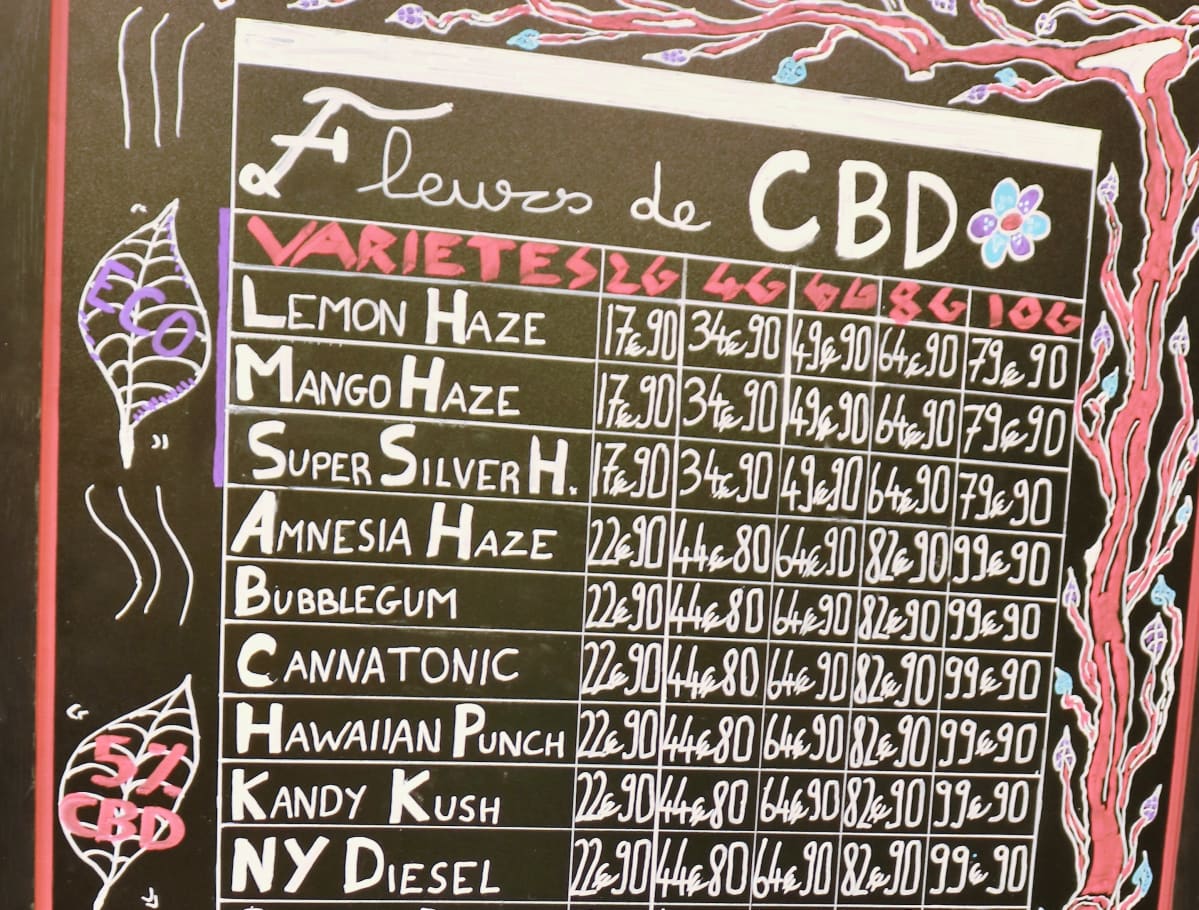 Fleurs de CBD
VARIETES 2G 4G 6G 8G 10G
LEMON HAZE 17€90 34€90 49€90 64€90 79€90
MANGO HAZE 17€90 34€90 49€90 64€90 79€90
SUPER SILVER H. 17€90 34€90 49€90 64€90 79€90
AMNESIA HAZE 22€90 44€80 64€90 82€90 99€90
BUBBLEGUM 22€90 44€80 64€90 82€90 99€90
CANNATONIC 22€90 44€80 64€90 82€90 99€90
HAWAIIAN PUNCH 22€90 44€80 64€90 82€90 99€90
KANDY KUSH 22€90 44€80 64€90 82€90 99€90
NY DIESEL 22€90 44€80 64€90 82€90 99€90
ECO
5%
CBD